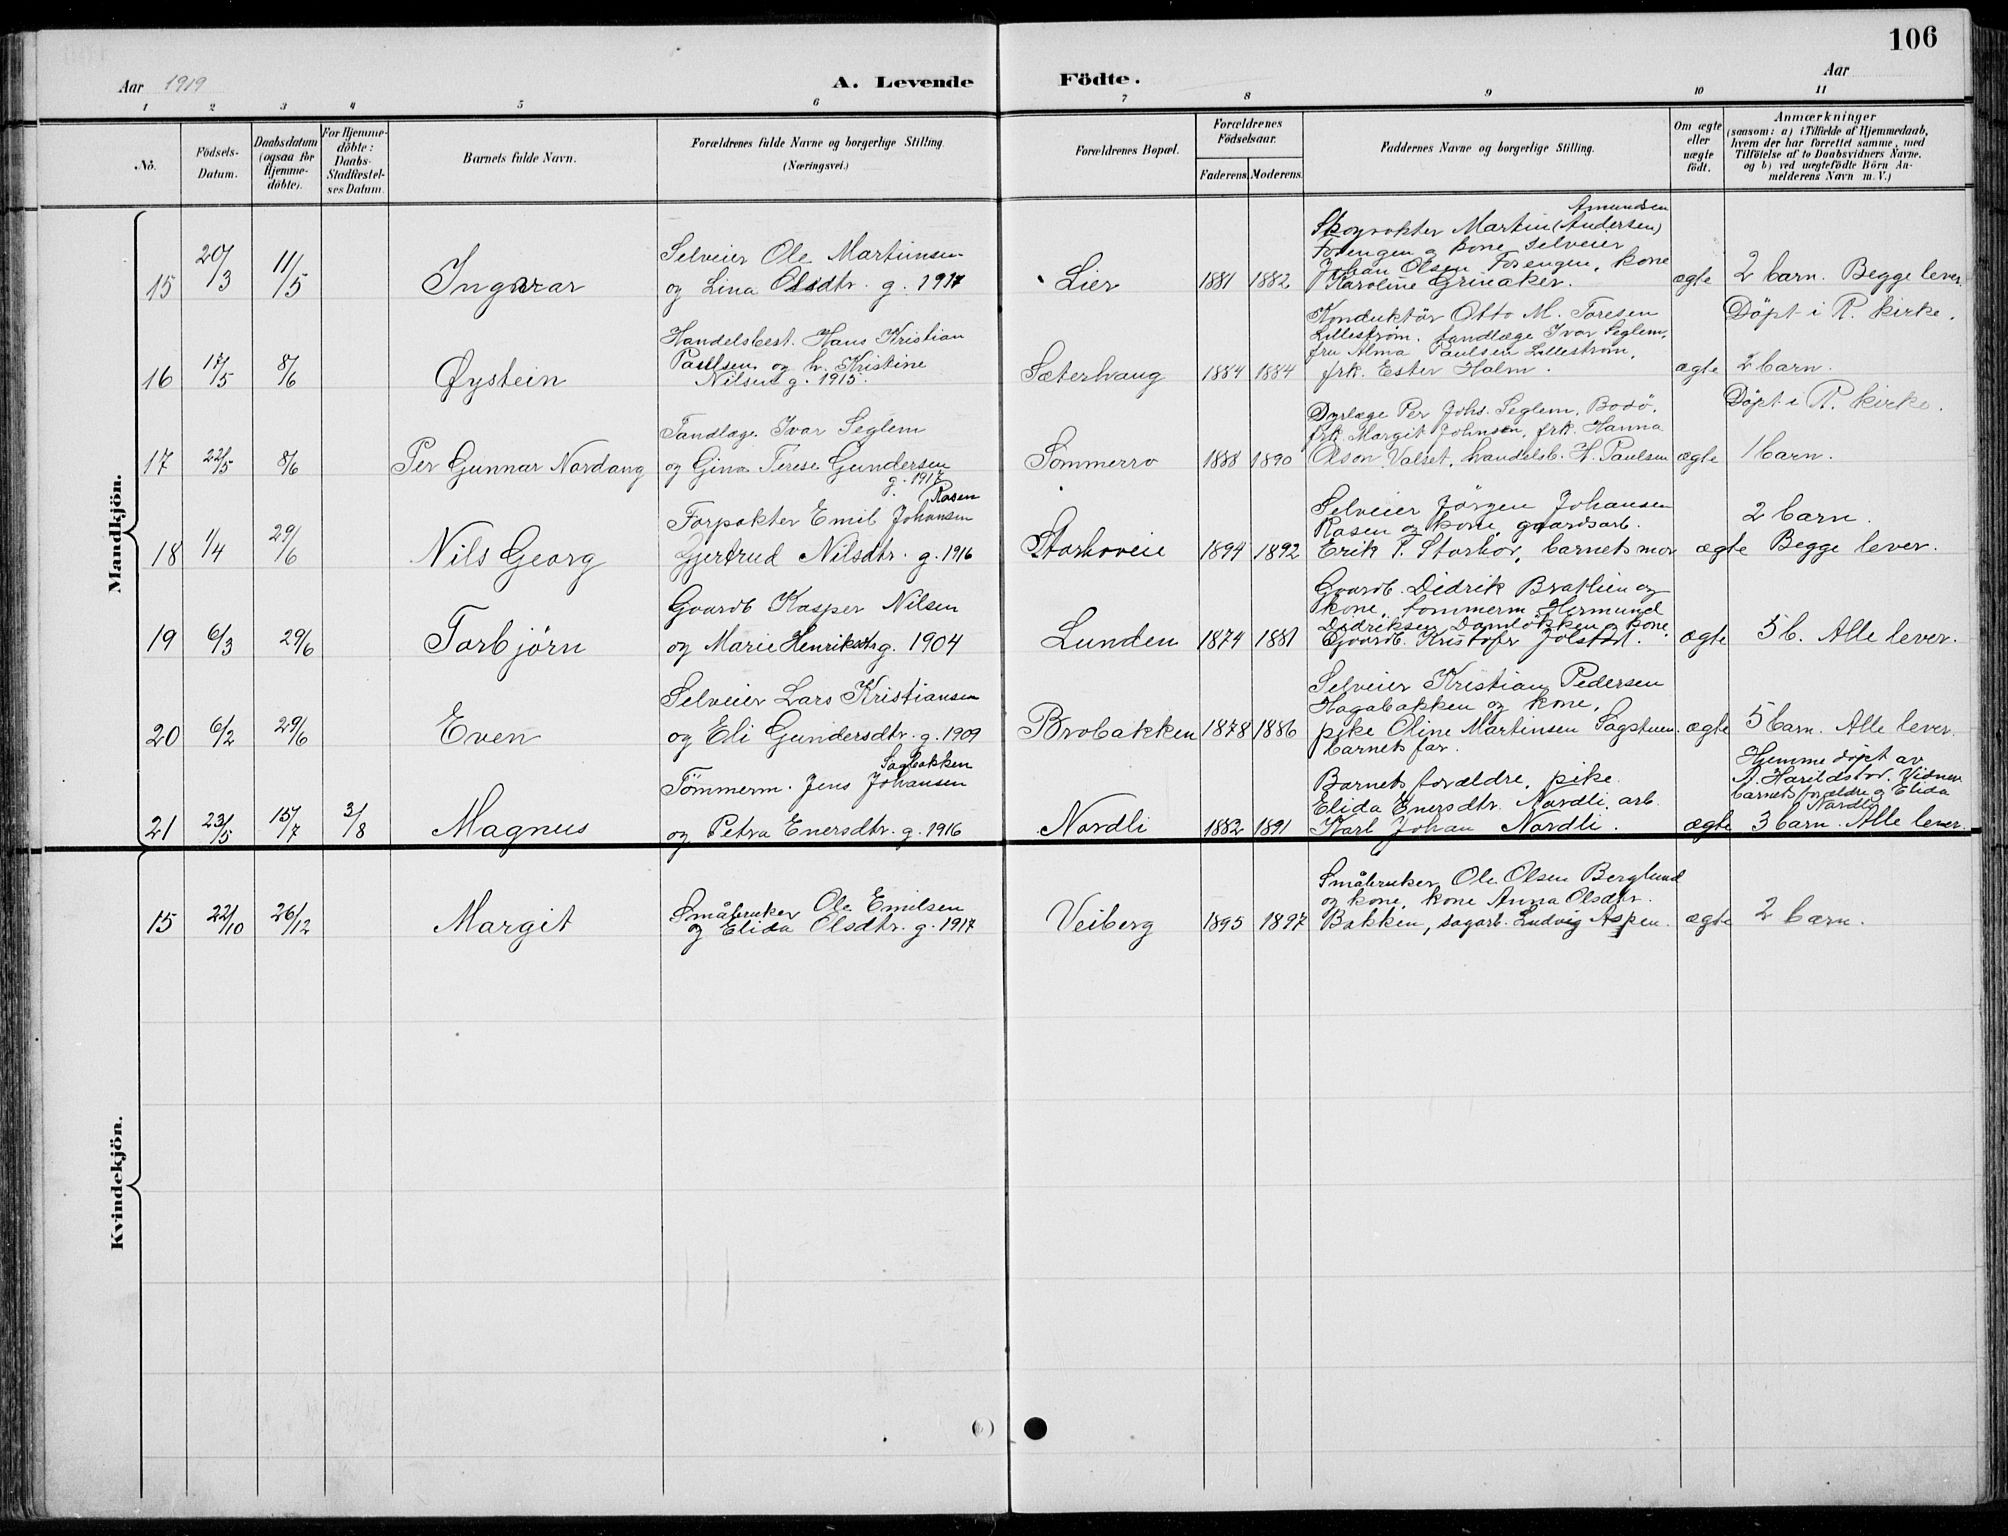 106
Aar 1919
A. Levende Födte.
Aar
1 2 3 4 5 6 7 8 9 10 11
No.
Födsels-Datum.
Daabsdatum (ogsaa for Hjemme-döbte).
For Hjemme-döbte: Daabs-Stadfæstel-ses Datum.
Barnets fulde Navn.
Forældrenes fulde Navne og borgerlige Stilling (Næringsvei.)
Forældrenes Bopæl.
Forældrenes Födselsaar.
Faderens Moderens
Faddernes Navne og borgerlige Stilling.
Om ægte eller uægte født.
Anmærkninger
(saasom: a) i Tilfælde af Hjemmedaab,
hvem der har forrettet samme, med
Tilföielse af to Daabsvidners Navne,
og b) ved uægtefödte Börn An-
melderens Navn m. V.)
Mandkjön.
15 20/3 11/5 Ingvar
Selveier Ole Martinsen
og Lina Olsdtr. g. 1917
Lier 1881 1882
Amundsen
Skogvokter Martin (Andersen)
Forengen og kone, selveier
Johan Olsen Forengen, kone
Karoline Grinaker.
ægte
2 barn. Begge lever.
16 17/5 8/6 Øystein
Handelsbest. Hans Kristian
Paulsen og h. Kristine
Nilsen g. 1915.
Sæterhaug 1884 1884
Konduktör Otto M. Toresen
Lillestrøm, tandlæge Ivar Seglem,
fru Alma Paulsen Lillestrøm,
frk. Ester Holm.
ægte
Döpt i R. kirke.
2 barn.
17 22/5 8/6 Per Gunnar Nordang
Tandlæge Ivar Seglem
og Gina Terese Gundersen
g. 1917
Sommerro 1888 1890
Dyrlæge Per Johs. Seglem, Bodö,
frk. Margit Johnsen, frk. Hanna
Olson Valset, handelsb. H. Paulsen
ægte
Döpt i R. kirke.
1 barn.
18 1/4 29/6 Nils Georg
Rasen
Forpakter Emil Johansen
Gjertrud Nilsdtr. g. 1916
Storhoveie 1894 1892
Selveier Jörgen Johansen
Rasen og kone, gaardsarb.
Erik P. Storhov, barnets mor
ægte
2 barn.
Begge lever.
19 6/3 29/6 Torbjörn
Gaardb. Kasper Nilsen
og Marie Henriksdtr g. 1904
Lunden 1874 1881
Gaardb. Didrik Bratlien og
kone, tømmerm. Hermund
Didriksen Damløkken og kone,
Gaardb. Kristofer Jolstad.
ægte
5 b. Alle lever.
20 6/2 29/6 Even
Selveier Lars Kristiansen
og Eli Gundersdtr. g. 1909
Brobakken 1878 1886
Selveier Kristian Pedersen
Hagabakken og kone,
pike Oline Martinsen Sagstuen.
barnets far.
ægte
5 barn. Alle lever.
21 23/5 15/7 3/8 Magnus
Sagbakken
Tömmerm. Jens Johansen
og Petra Enersdtr. g. 1916
Nordli 1882 1891
Barnets forældre, pike
Elida Enersdtr. Nordli, arb.
Karl Johan Nordli.
ægte
Hjemmedöpt av
Vidner
barnets forældre og Elida
Nordli
3 barn. Alle lever.
Kvindekjön.
15 22/10 26/12 Margit
Småbruker Ole Emilsen
og Elida Olsdtr. g. 1917
Veiberg 1895 1897
Småbruker Ole Olsen Berglund
og kone, kone Anna Olsdtr.
Bakken, sagarb. Ludvig Aspen.
ægte
2 barn.